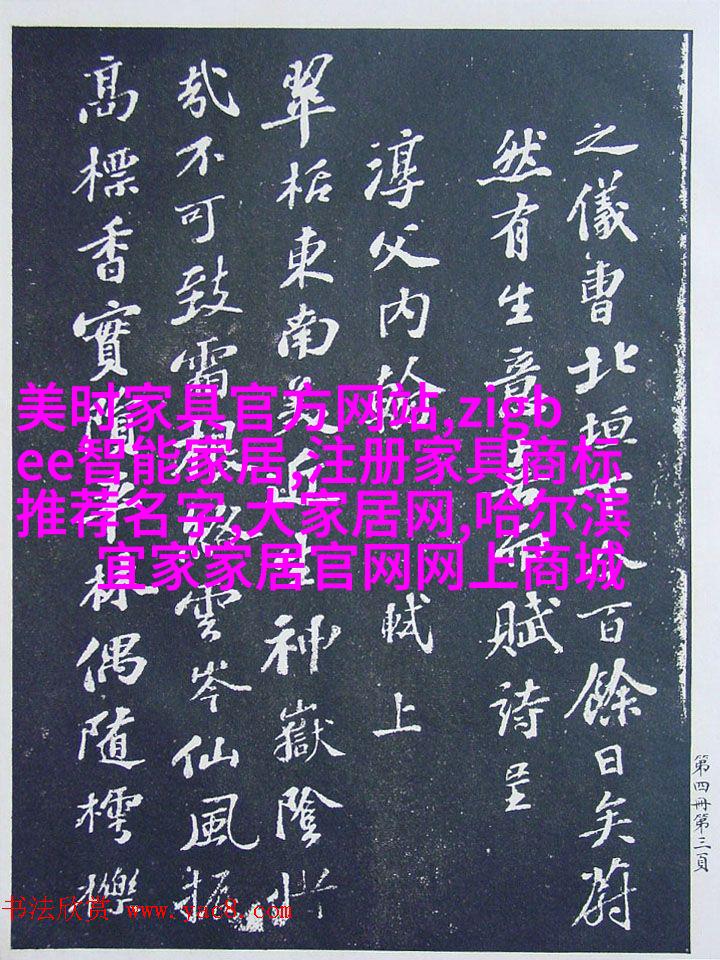 之儀曹北垣下今百餘日矣蔚
然有生意喜而賦詩呈
淳父內翰 軾上
翠栝東南美近生神嶽陰惜
哉不可致霜根絡雲岑仙風振
高標香實隕平林偶隨樗櫟
美时家具官方网站,zigb
ee智能家居,注册家具商标
推荐名字,大家居网,哈尔滨
宜家家居官网网上商城
第四冊第三頁
书法欣赏 www.yac8.com